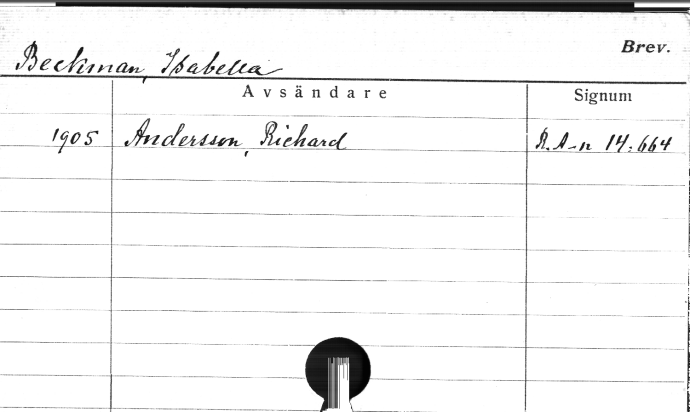 Brev.
Beckman, Isabella
Avsändare Signum
1905 Andersson, Richard R.A-n 14:664